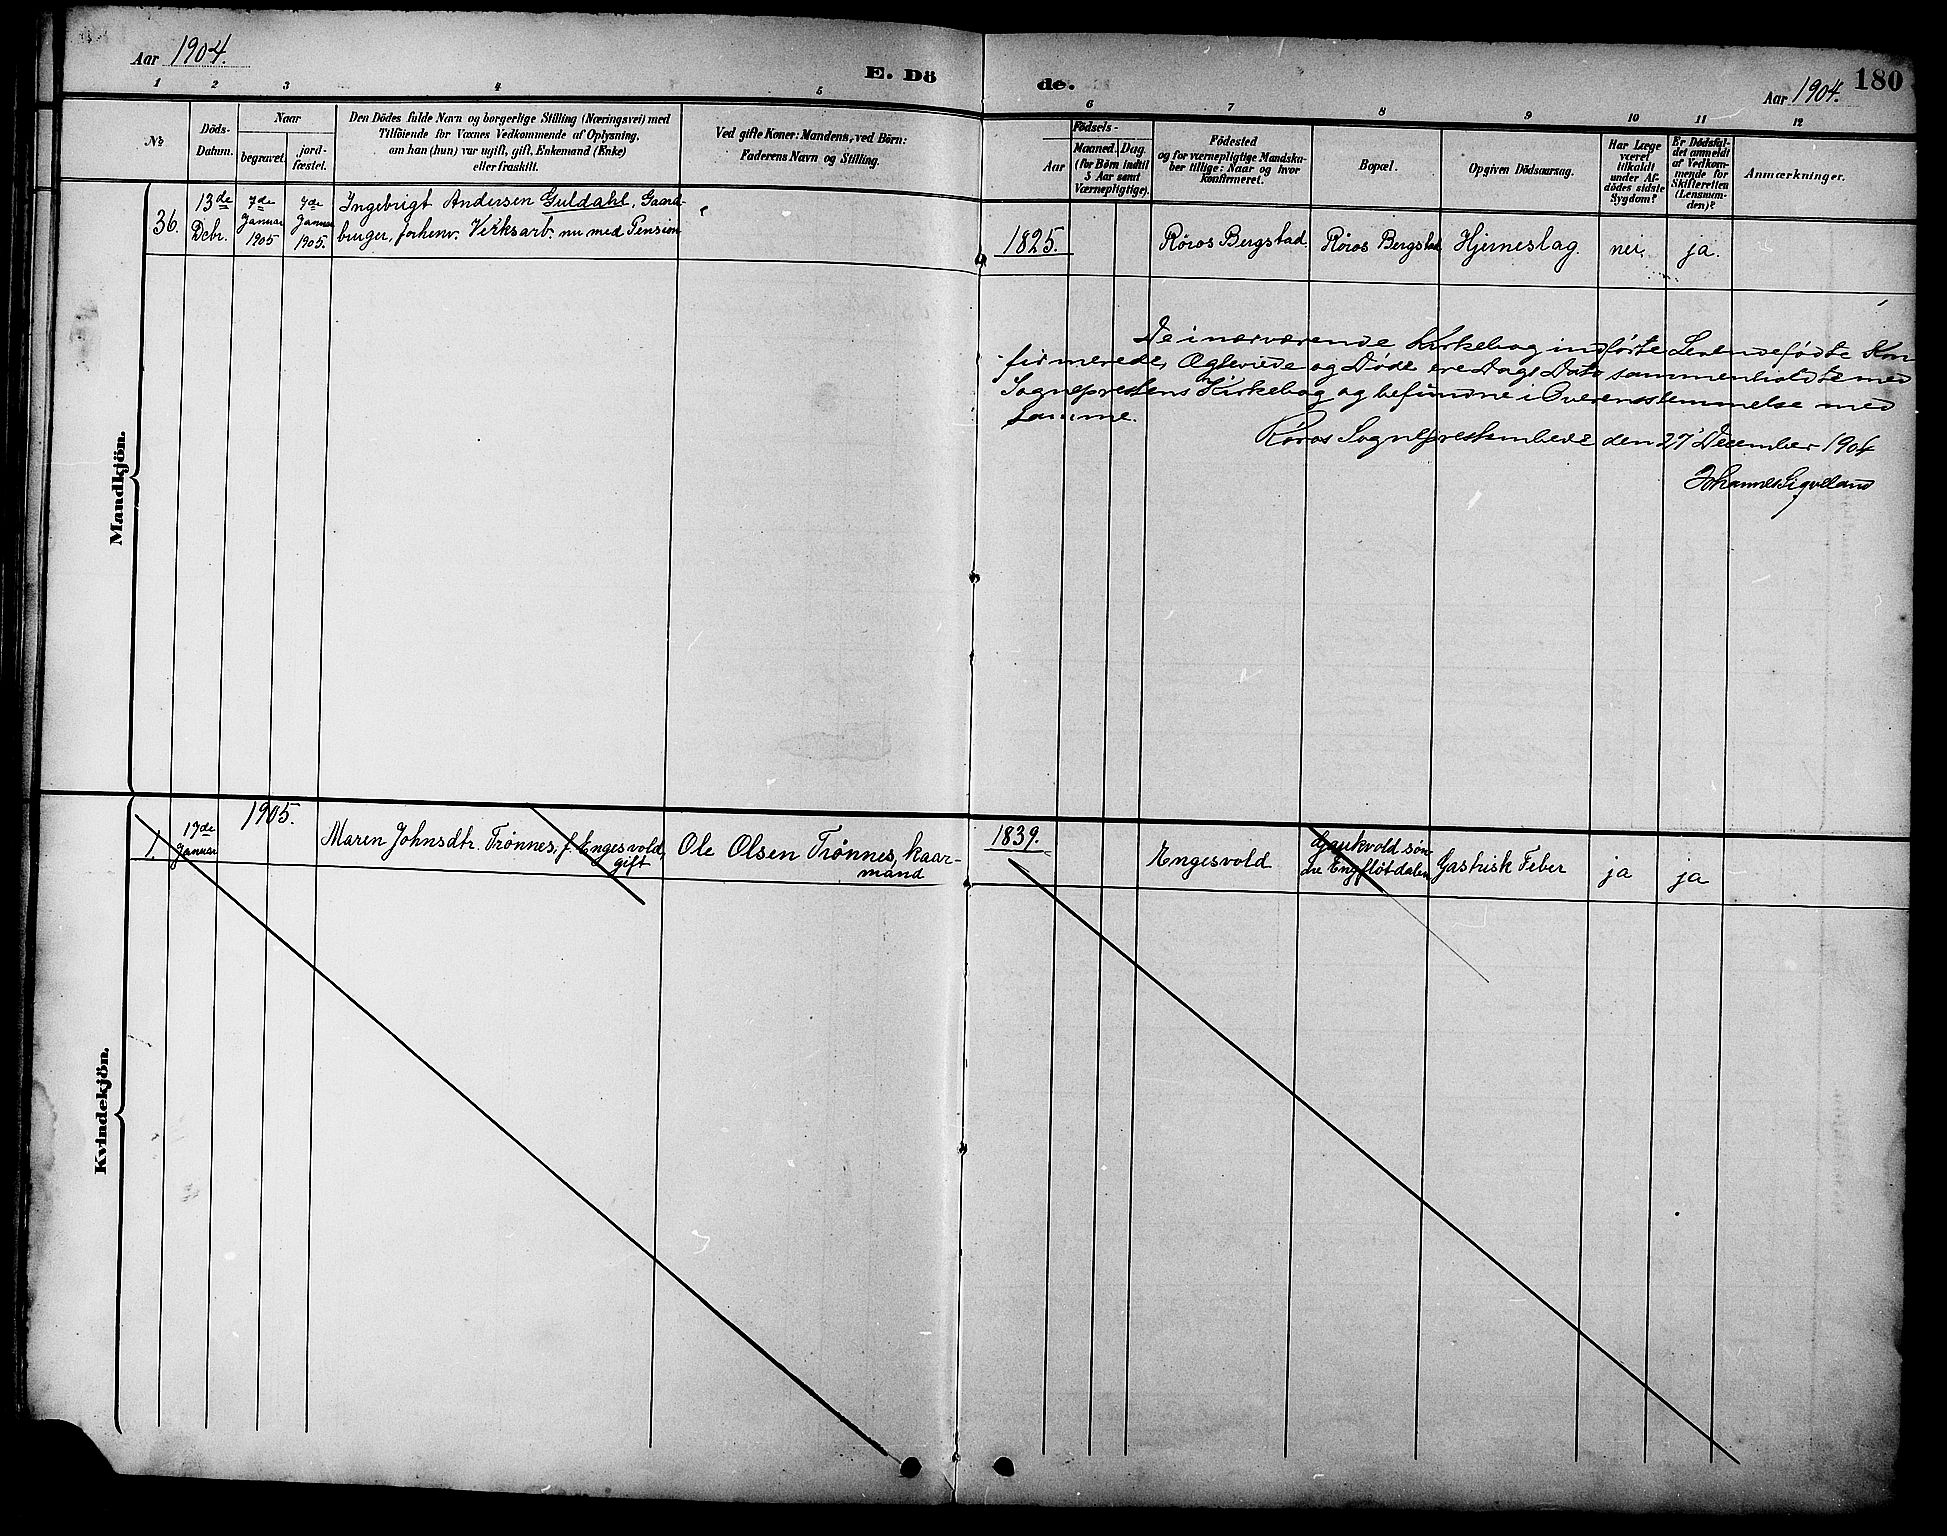 Aar 1904.
E. Dö
de.
Aar 1904.
180
1 2 3 4 5 6 7 8 9 10 11 12
No
Döds-
Datum.
Naar
begravet.
jord-
fæstet.
Den Dödes fulde Navn og borgerlige Stilling (Næringsvei) med
Tilföiende for Voxnes Vedkommende af Oplysning,
om han (hun) var ugift, gift, Enkemand (Enke)
eller fraskilt.
Ved gifte Koner: Mandens, ved Börn:
Faderens Navn og Stilling.
Födsels-
Aar
Maaned. Dag.
(for Börn indtil
5 Aar samt
Værnepligtige).
Födested
og for værnepligtige Mandska-
ber tillige: Naar og hvor
konfirmeret.
Bopæl.
Opgiven Dödsaarsag.
Har Læge
været
tilkaldt
under Af-
dödes sidste
Sygdom?
Er Dödsfal-
det anmeldt
af Vedkom-
mende for
Skifteretten
(Lensman-
den)?
Anmærkninger.
Mandkjön.
36.
13de
Dcbr.
7de
Januar
1905
7de
Januar
1905.
Ingebrigt Andersen Guldahl, Gaard-
bruger, forhenv. Verksarb. nu med Pension
1825.
Røros Bergstad.
Røros Bergstad
Hjerneslag.
nei.
ja.
De i nærværende Kirkebog indførte Levendefødte Kon
firmerede, Ægteviede og Døde ere Dags Dato sammenholdte med
Sogneprestens Kirkebog og befundne i Overensstemmelse med
Samme.
Røros Sogneprestembede den 27 December 1904
Johannes Sigveland
Kvindekjön.
1905.
1.
17de
Januar
Maren Johnsdtr. Trønnes, f. Engesvold,
gift
Ole Olsen Trønnes, kaar-
mand
1839.
Engesvold
Gaukvold søn-
dre Engfløtdalen
Gastrisk Feber
ja
ja